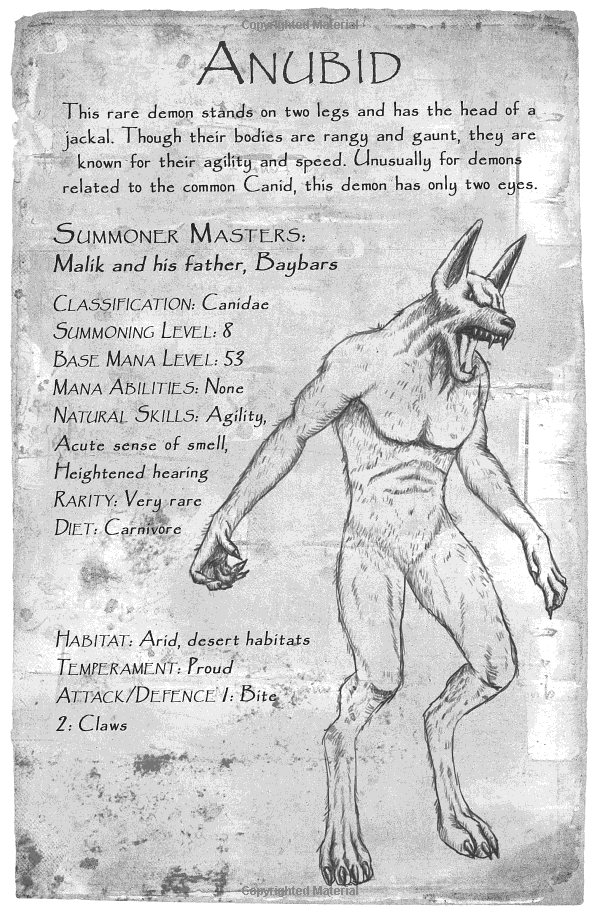 Copyrighted Material
ANUBID
This rare demon stands on two legs and has the head of a
jackal. Though their bodies are rangy and gaunt, they are
known for their agility and speed. Unusually for demons
related to the common Canid, this demon has only two eyes.
SUMMONER MASTERS:
Malik and his father, Baybars
CLASSIFICATION: Canidae
SUMMONING LEVEL: 8
BASE MANA LEVEL: 53
MANA ABILITIES: None
NATURAL SKILLS: Agility,
Acute sense of smell,
Heightened hearing
RARITY: Very rare
DIET: Carnivore
HABITAT: Arid, desert habitats
TEMPERAMENT: Proud
ATTACK/DEFENCE 1: Bite
2: Claws
Copyrighted Material